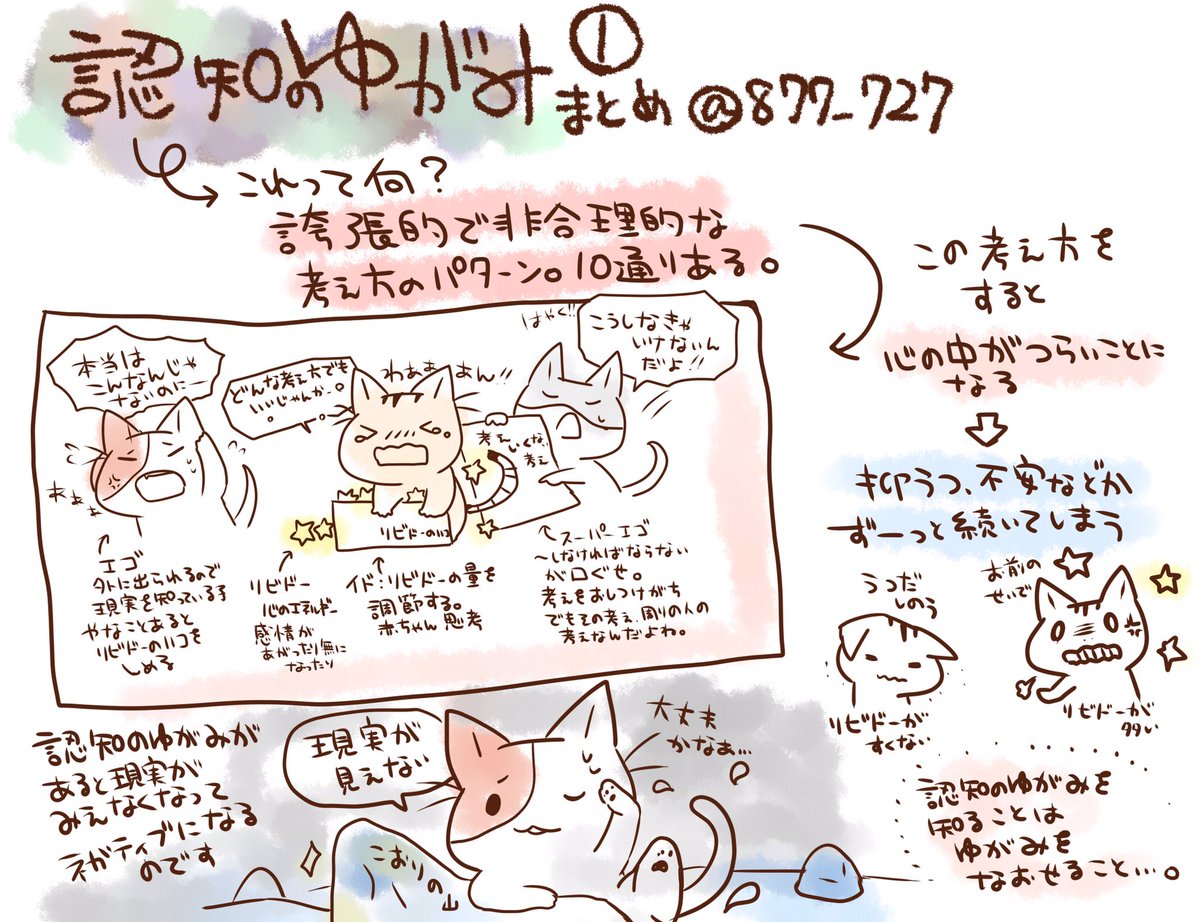 認知のゆがみ①
まとめ@877_727
これって何?
誇張的で非合理的な
考え方のパターン。10通りある。
この考え方を
すると
心の中がつらいことに
なる
抑うつ、不安などが
ずーっと続いてしまう
本当は
こんなんじゃ
ないのにー
どんな考え方でも
いいじゃんかー。
わあぁぁぁん!!
はやく!!
こうしなきゃ
いけないん
だよ!!
考え
いくな、
考え
リビドーのハコ
エゴ
外に出られるので
現実を知っている子
やなことあると
リビドーのハコを
しめる
リビドー
心のエネルギー
感情が
あがったり無に
なったり
イド:リビドーの量を
調節する。
赤ちゃん思考
スーパーエゴ
〜しなければならない
が口ぐせ。
考えをおしつけがち
でもその考え、周りの人の
考えなんだよね。
うつだ
しのう
リビドーが
すくない
お前の
せいで
リビドーが
多い
認知のゆがみが
あると現実が
みえなくなって
ネガティブになる
のです
現実が
見えない
大丈夫
かなぁ…
こおりの山
認知のゆがみを
知ることは
ゆがみを
なおせること…。